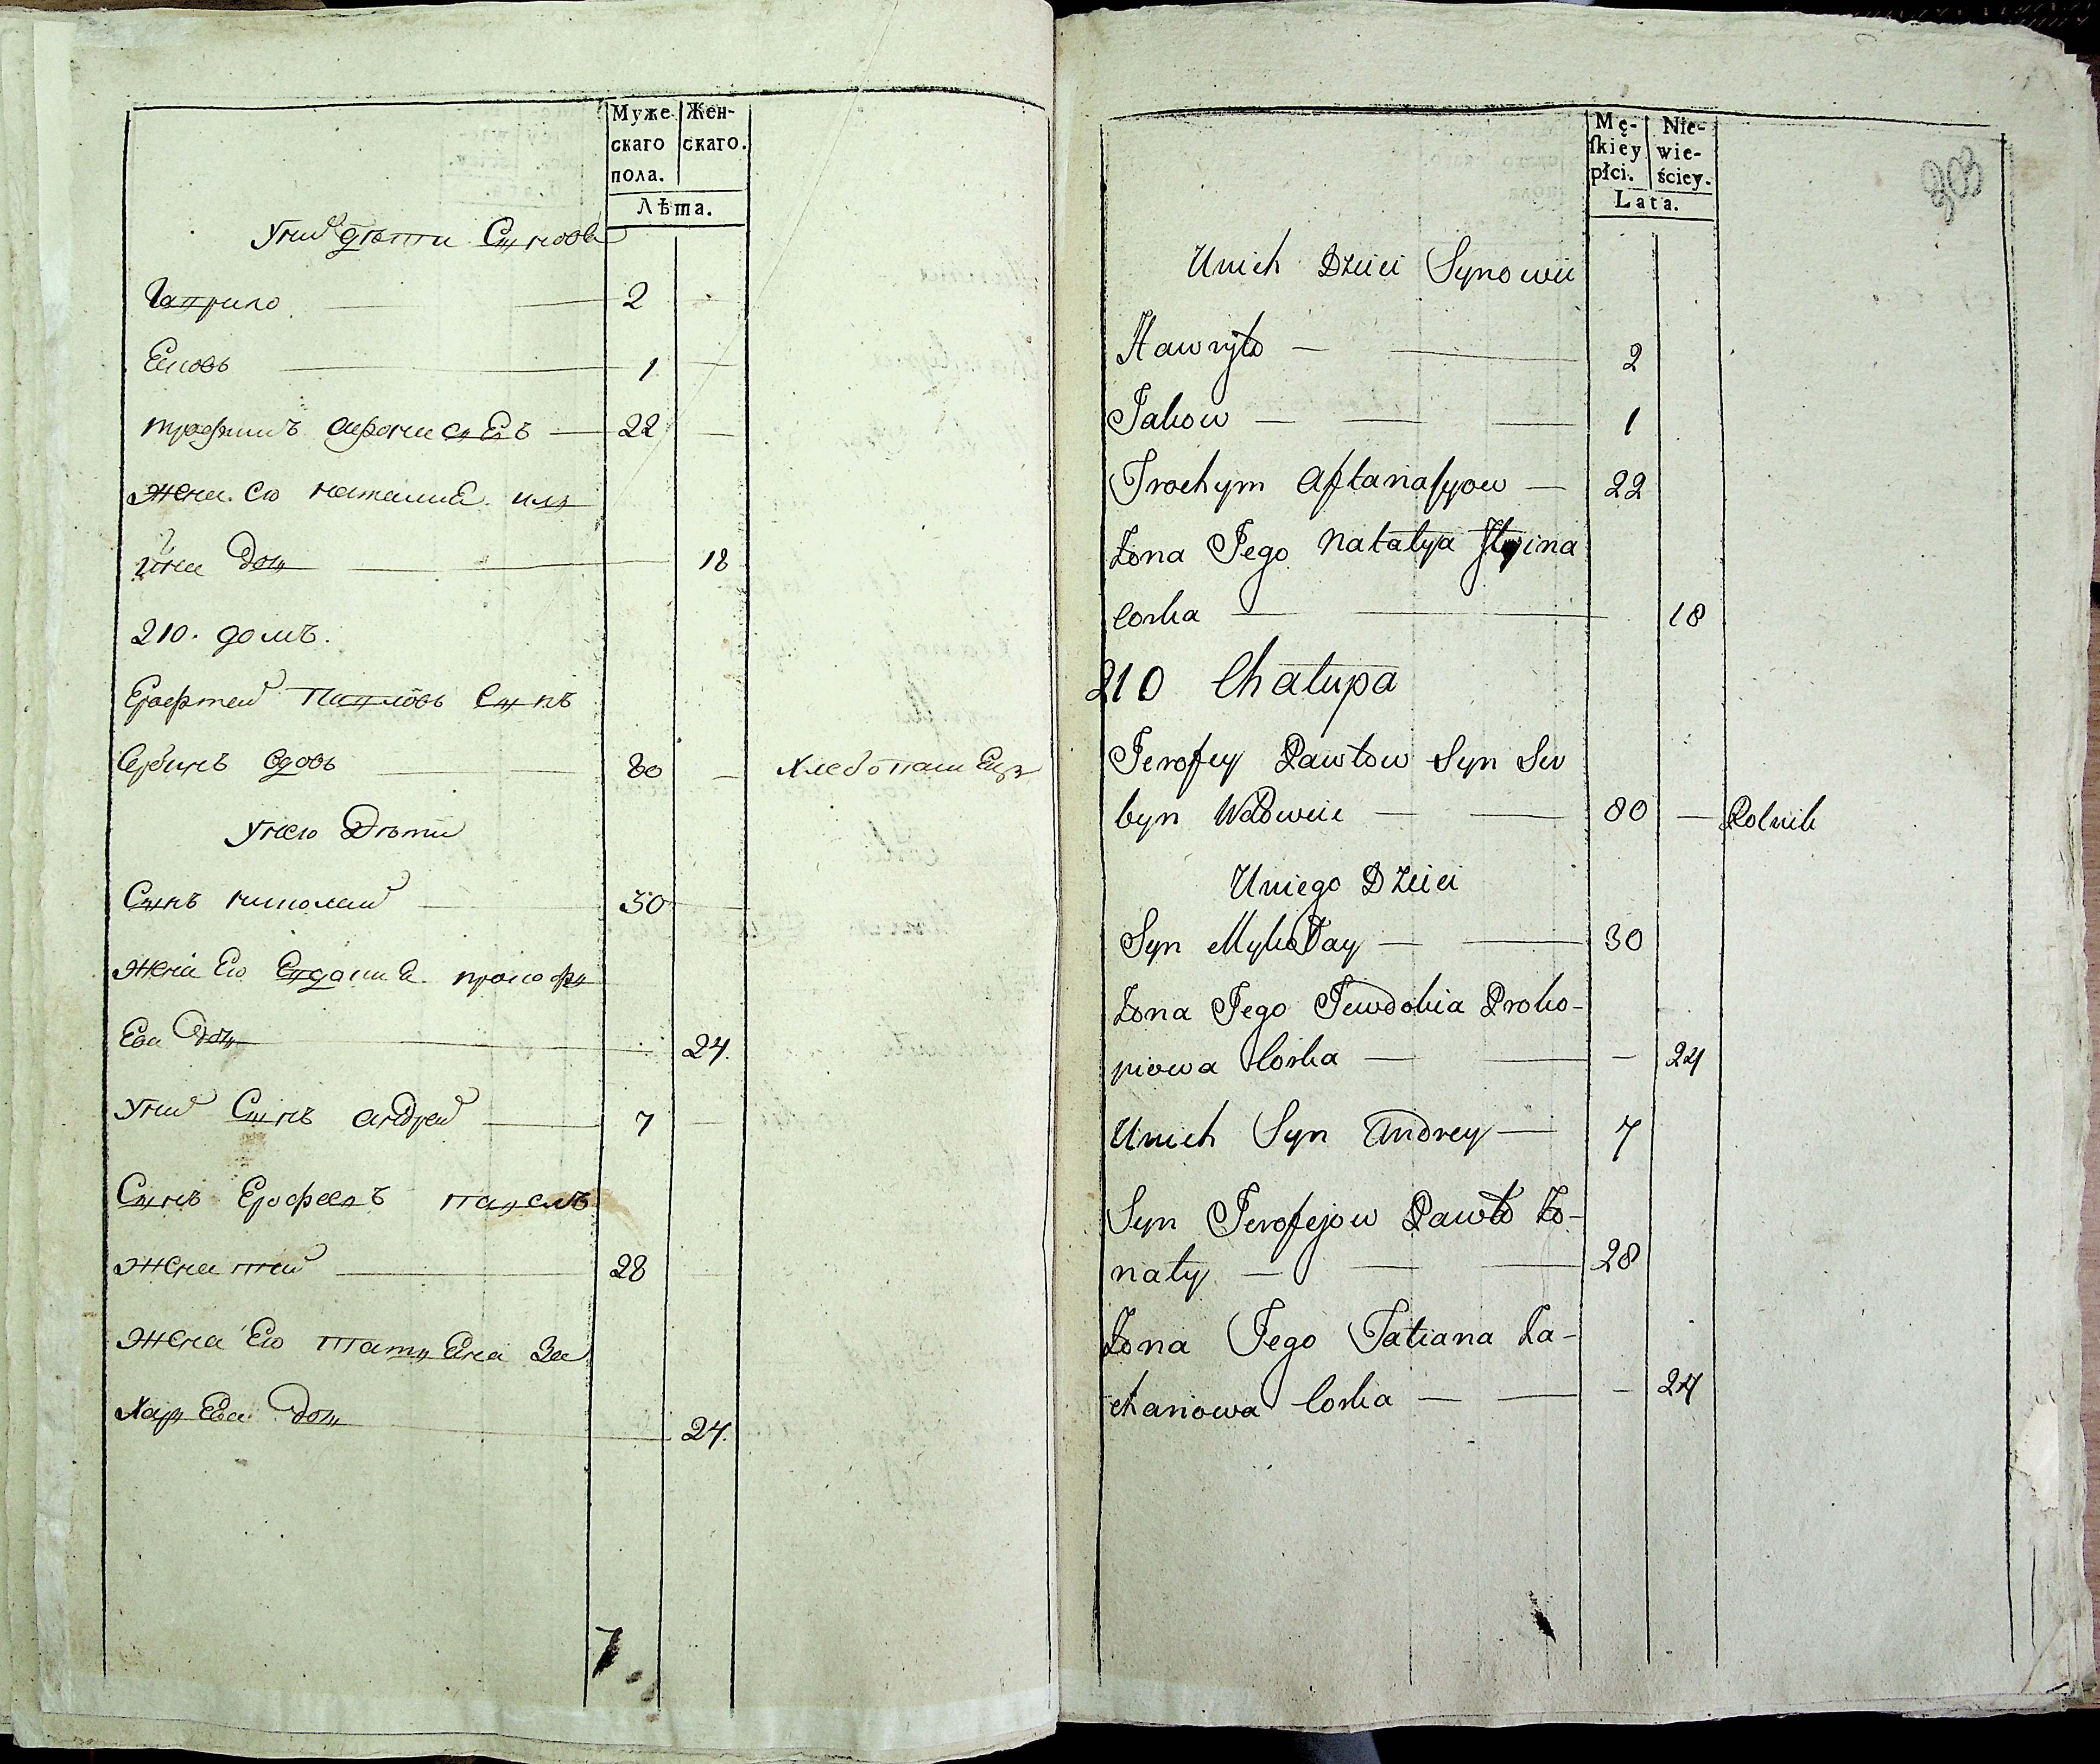 Муже
скаго
пола.
Жен-
скаго.
Лѣта.
Уних дѣти Синове
Гаврило 2
Еков 1
трофимъ афонасиевъ 22
Жена его наталиа или
ина доч 18
210. домъ.
Ерофтей Павловъ Синъ
Сербинъ вдовъ 80 — Хлебопашец
Унего Дѣти
Синъ николай 30
Жена Его Евдокиа прокофи
Ева доч 24.
Уних Синъ андрей 7
Синъ Ерофеевъ павелъ
женатей 28
Жена Его татиЕна За
ХариЕва доч 24.
7
Mę-
ſkiey
płci.
Nie-
wie-
ściey.
Lata.
303
Unich Dzieci Synowii
Hawryło — 2
Jakow — 1
Trochym Aftanaſyow — 22
Żona Jego Natalya
Corka — 18
210 Chałupa
Jerofey Pawłow Syn Ser
byn Wdowiec — 80 — Rolnik
Uniego Dzieci
Syn Mykołay — 30
Żona Jego Jewdokia Proko-
piowa Corka — — 24
Unich Syn Andrey — 7
Syn Jerofejow Pawło Żo-
naty — 28
Żona Jego Tatiana Za-
chariowa Corka — — 24